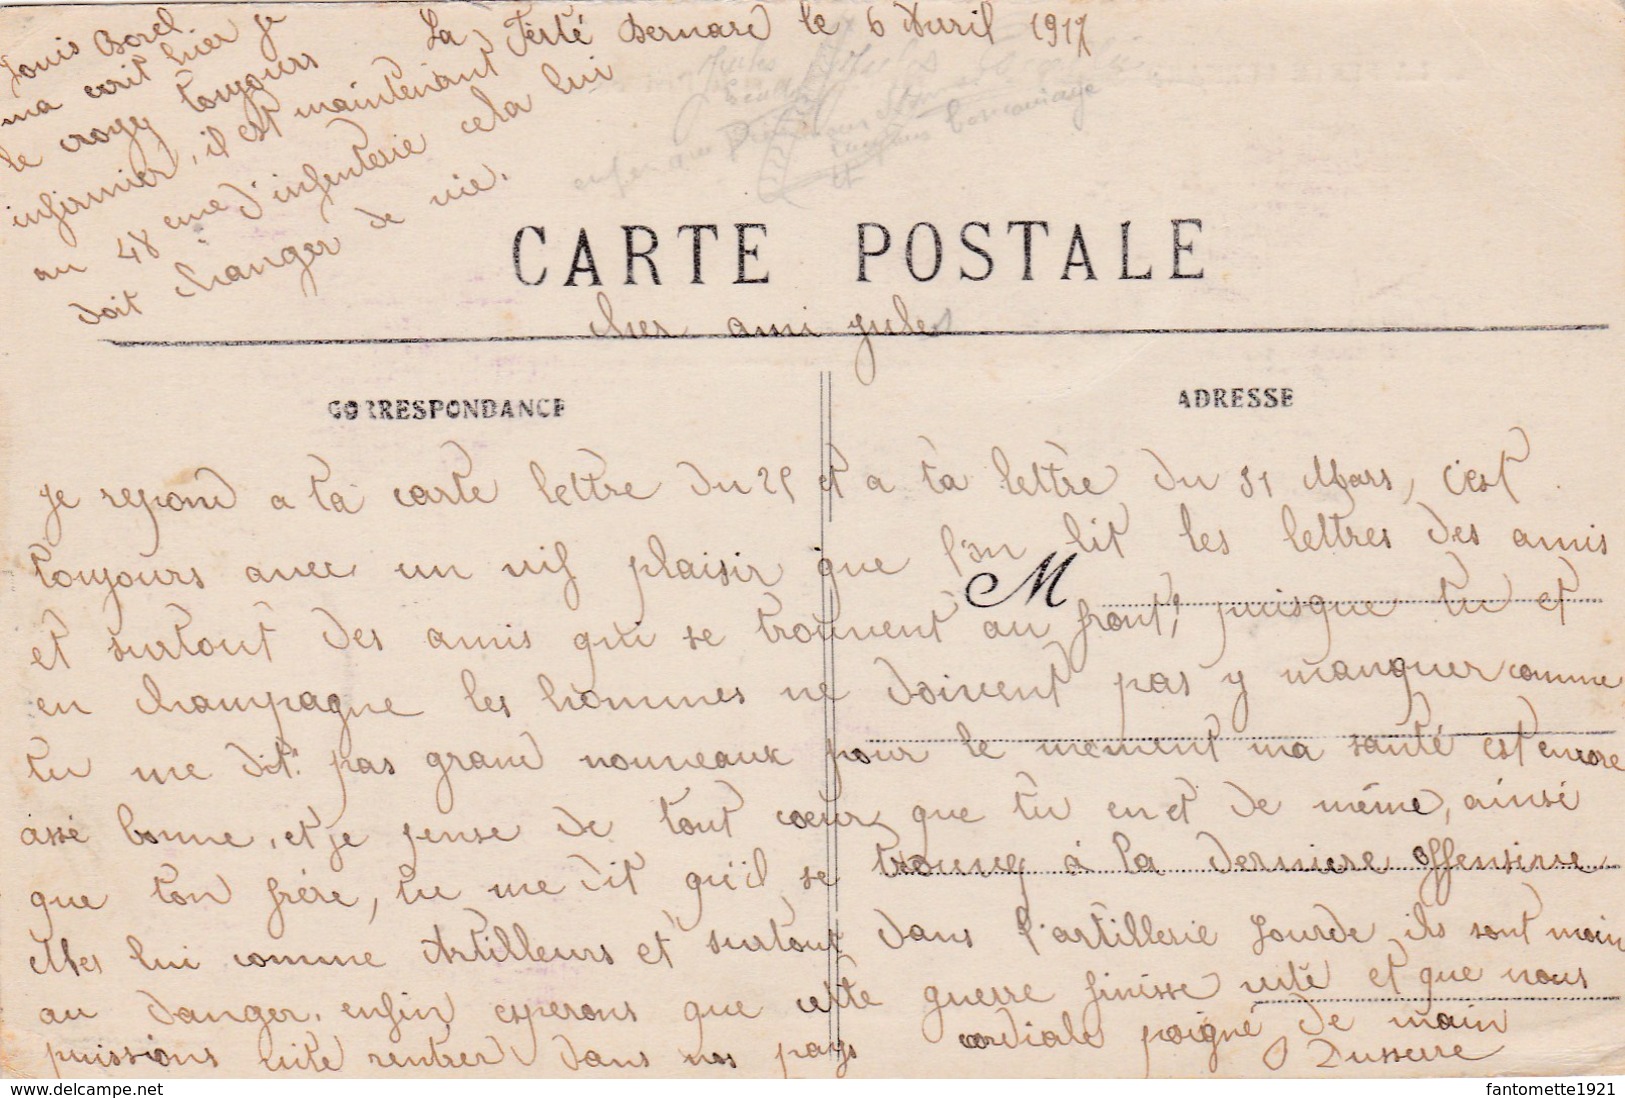 La Ferté Bernard le 6 Avril 1917
Louis Borel
ma ecrit hier je
le croyez toujours
infirmier, il est maintenant
au 48 eme d'infenterie cela lui
doit changer de vie.
CARTE POSTALE
cher ami jules
CORRESPONDANCE
ADRESSE
je repond a ta carte lettre du 25 et a ta lettre du 31 Mars, c'est
toujours avec un vif plaisir que l'on lit les lettres des amis
M
et surtout des amis qui se trouvent au front, puisque tu et
en champagne les hommes ne doivent pas y manquer comme
tu me dit. pas grand nouveaux pour le mement ma santé est encore
assé bonne, et je pense de tout cœur que tu en et de même, ainsi
que ton frére, tu me dit qu'il se trouvey à la derniere offensirse
Mes lui comme Artilleurs et surtout dans l'artillerie lourde ils sont moin
au danger. enfin esperons que cette guerre finisse vite et que nous
puissions vite rentrer dans nos pays cordiale poigné de main
Dusserre
fantomette1921